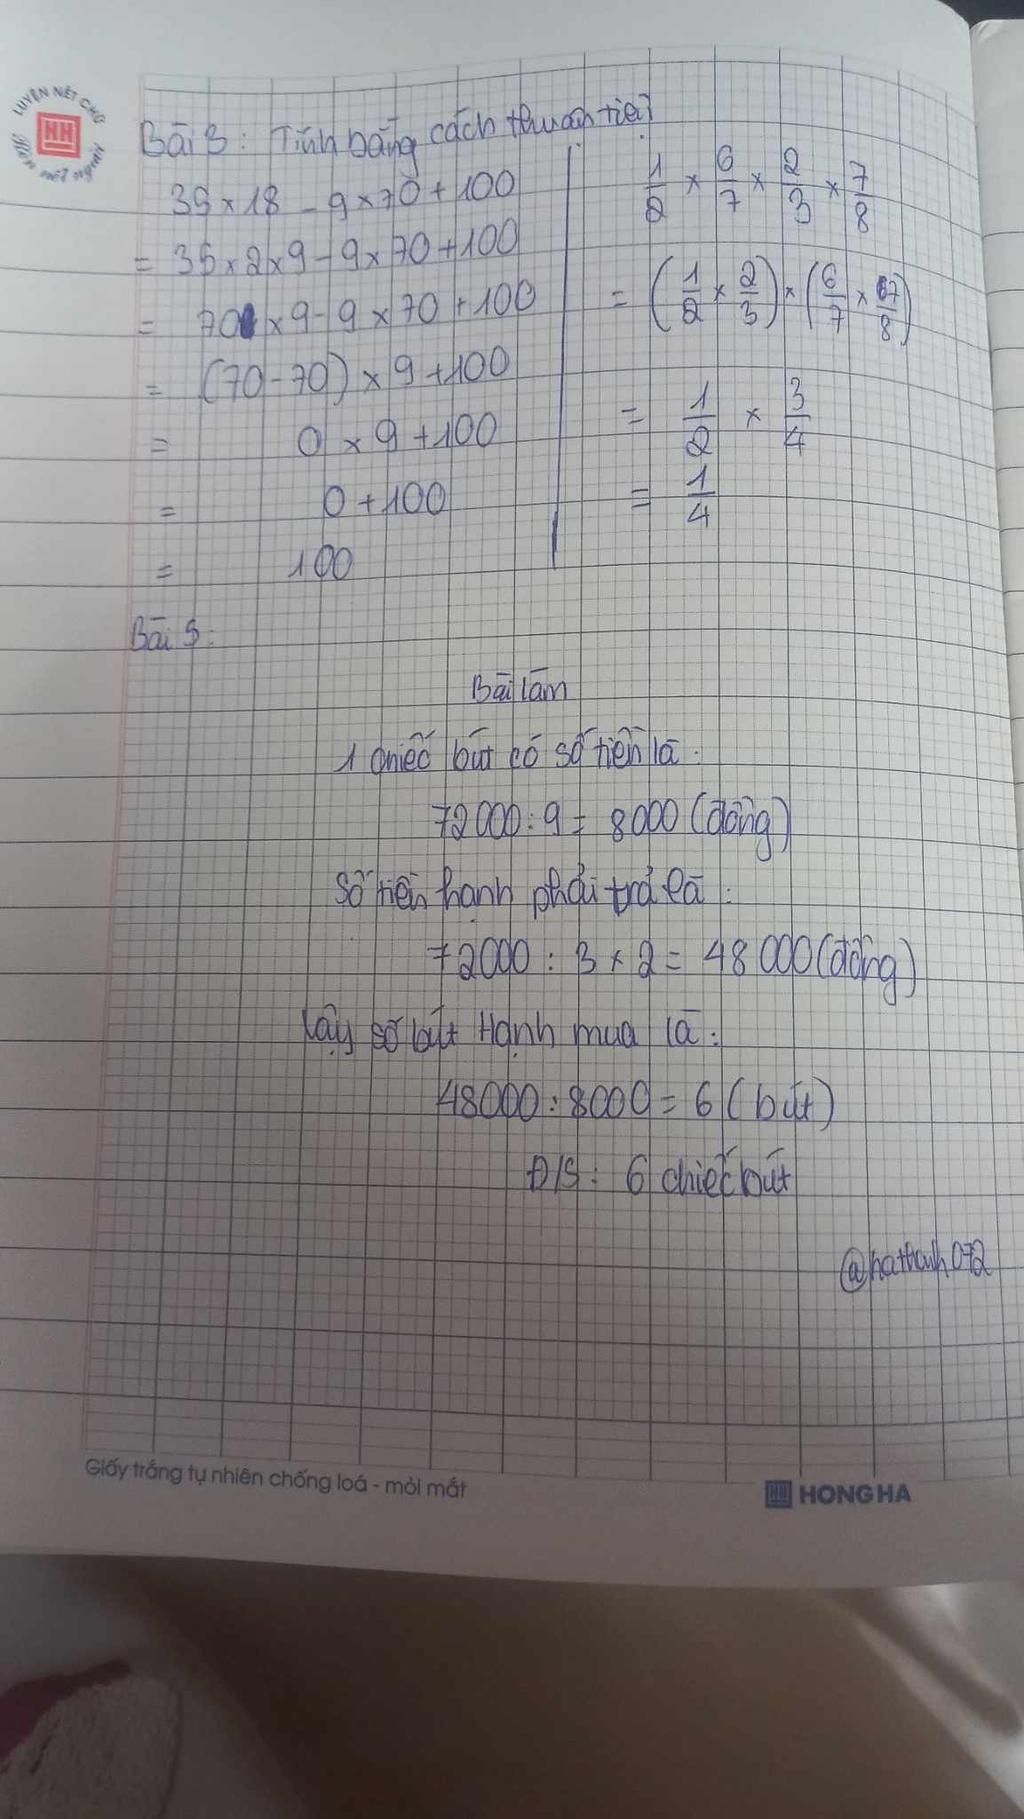 LUYỆN NÉT CHỮ
HH
Rèn nết người
Bài 3: Tính bằng cách thuận tiện
35 x 18 - 9 x 70 + 100
= 35 x 2 x 9 - 9 x 70 + 100
= 70 x 9 - 9 x 70 + 100
= (70 - 70) x 9 + 100
= 0 x 9 + 100
= 0 + 100
= 100
1/2 x 6/7 x 2/3 x 7/8
= (1/2 x 2/3) x (6/7 x 7/8)
= 1/2 x 3/4
= 1/4
Bài 5:
Bài làm
1 chiếc bút có số tiền là:
72000 : 9 = 8000 (đồng)
Số tiền hạnh phải trả là:
72000 : 3 x 2 = 48 000 (đồng)
Vậy số bút Hạnh mua là:
48000 : 8000 = 6 (bút)
Đ/S: 6 chiếc bút
@hathanh072
Giấy trắng tự nhiên chống loá - mỏi mắt
HH HONG HA